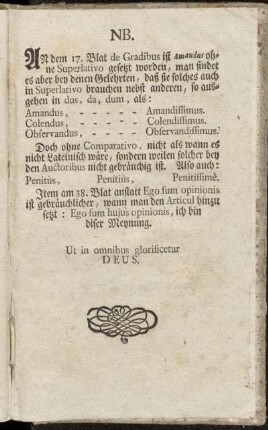 NB.
AN dem 17. Blat de Gradibus ist amandus oh-
ne Superlativo gesetzt worden, man findet
es aber bey denen Gelehrten, daß sie solches auch
in Superlativo brauchen nebst anderen, so aus-
gehen in dus, da, dum, als:
Amandus, - - - - - Amandissimus.
Colendus, - - - - - Colendissimus.
Observandus, - - - - Observandissimus.
Doch ohne Comparativo, nicht als wann es
nicht Lateinisch wäre, sondern weilen solcher bey
den Auctoribus nicht gebräuchig ist. Also auch:
Penitus, Penitiùs, Penitissimè.
Item am 38. Blat anstatt Ego sum opinionis
ist gebräuchlicher, wann man den Articul hinzu
setzt: Ego sum hujus opinionis, ich bin
diser Meynung.
Ut in omnibus glorificetur
DEUS.